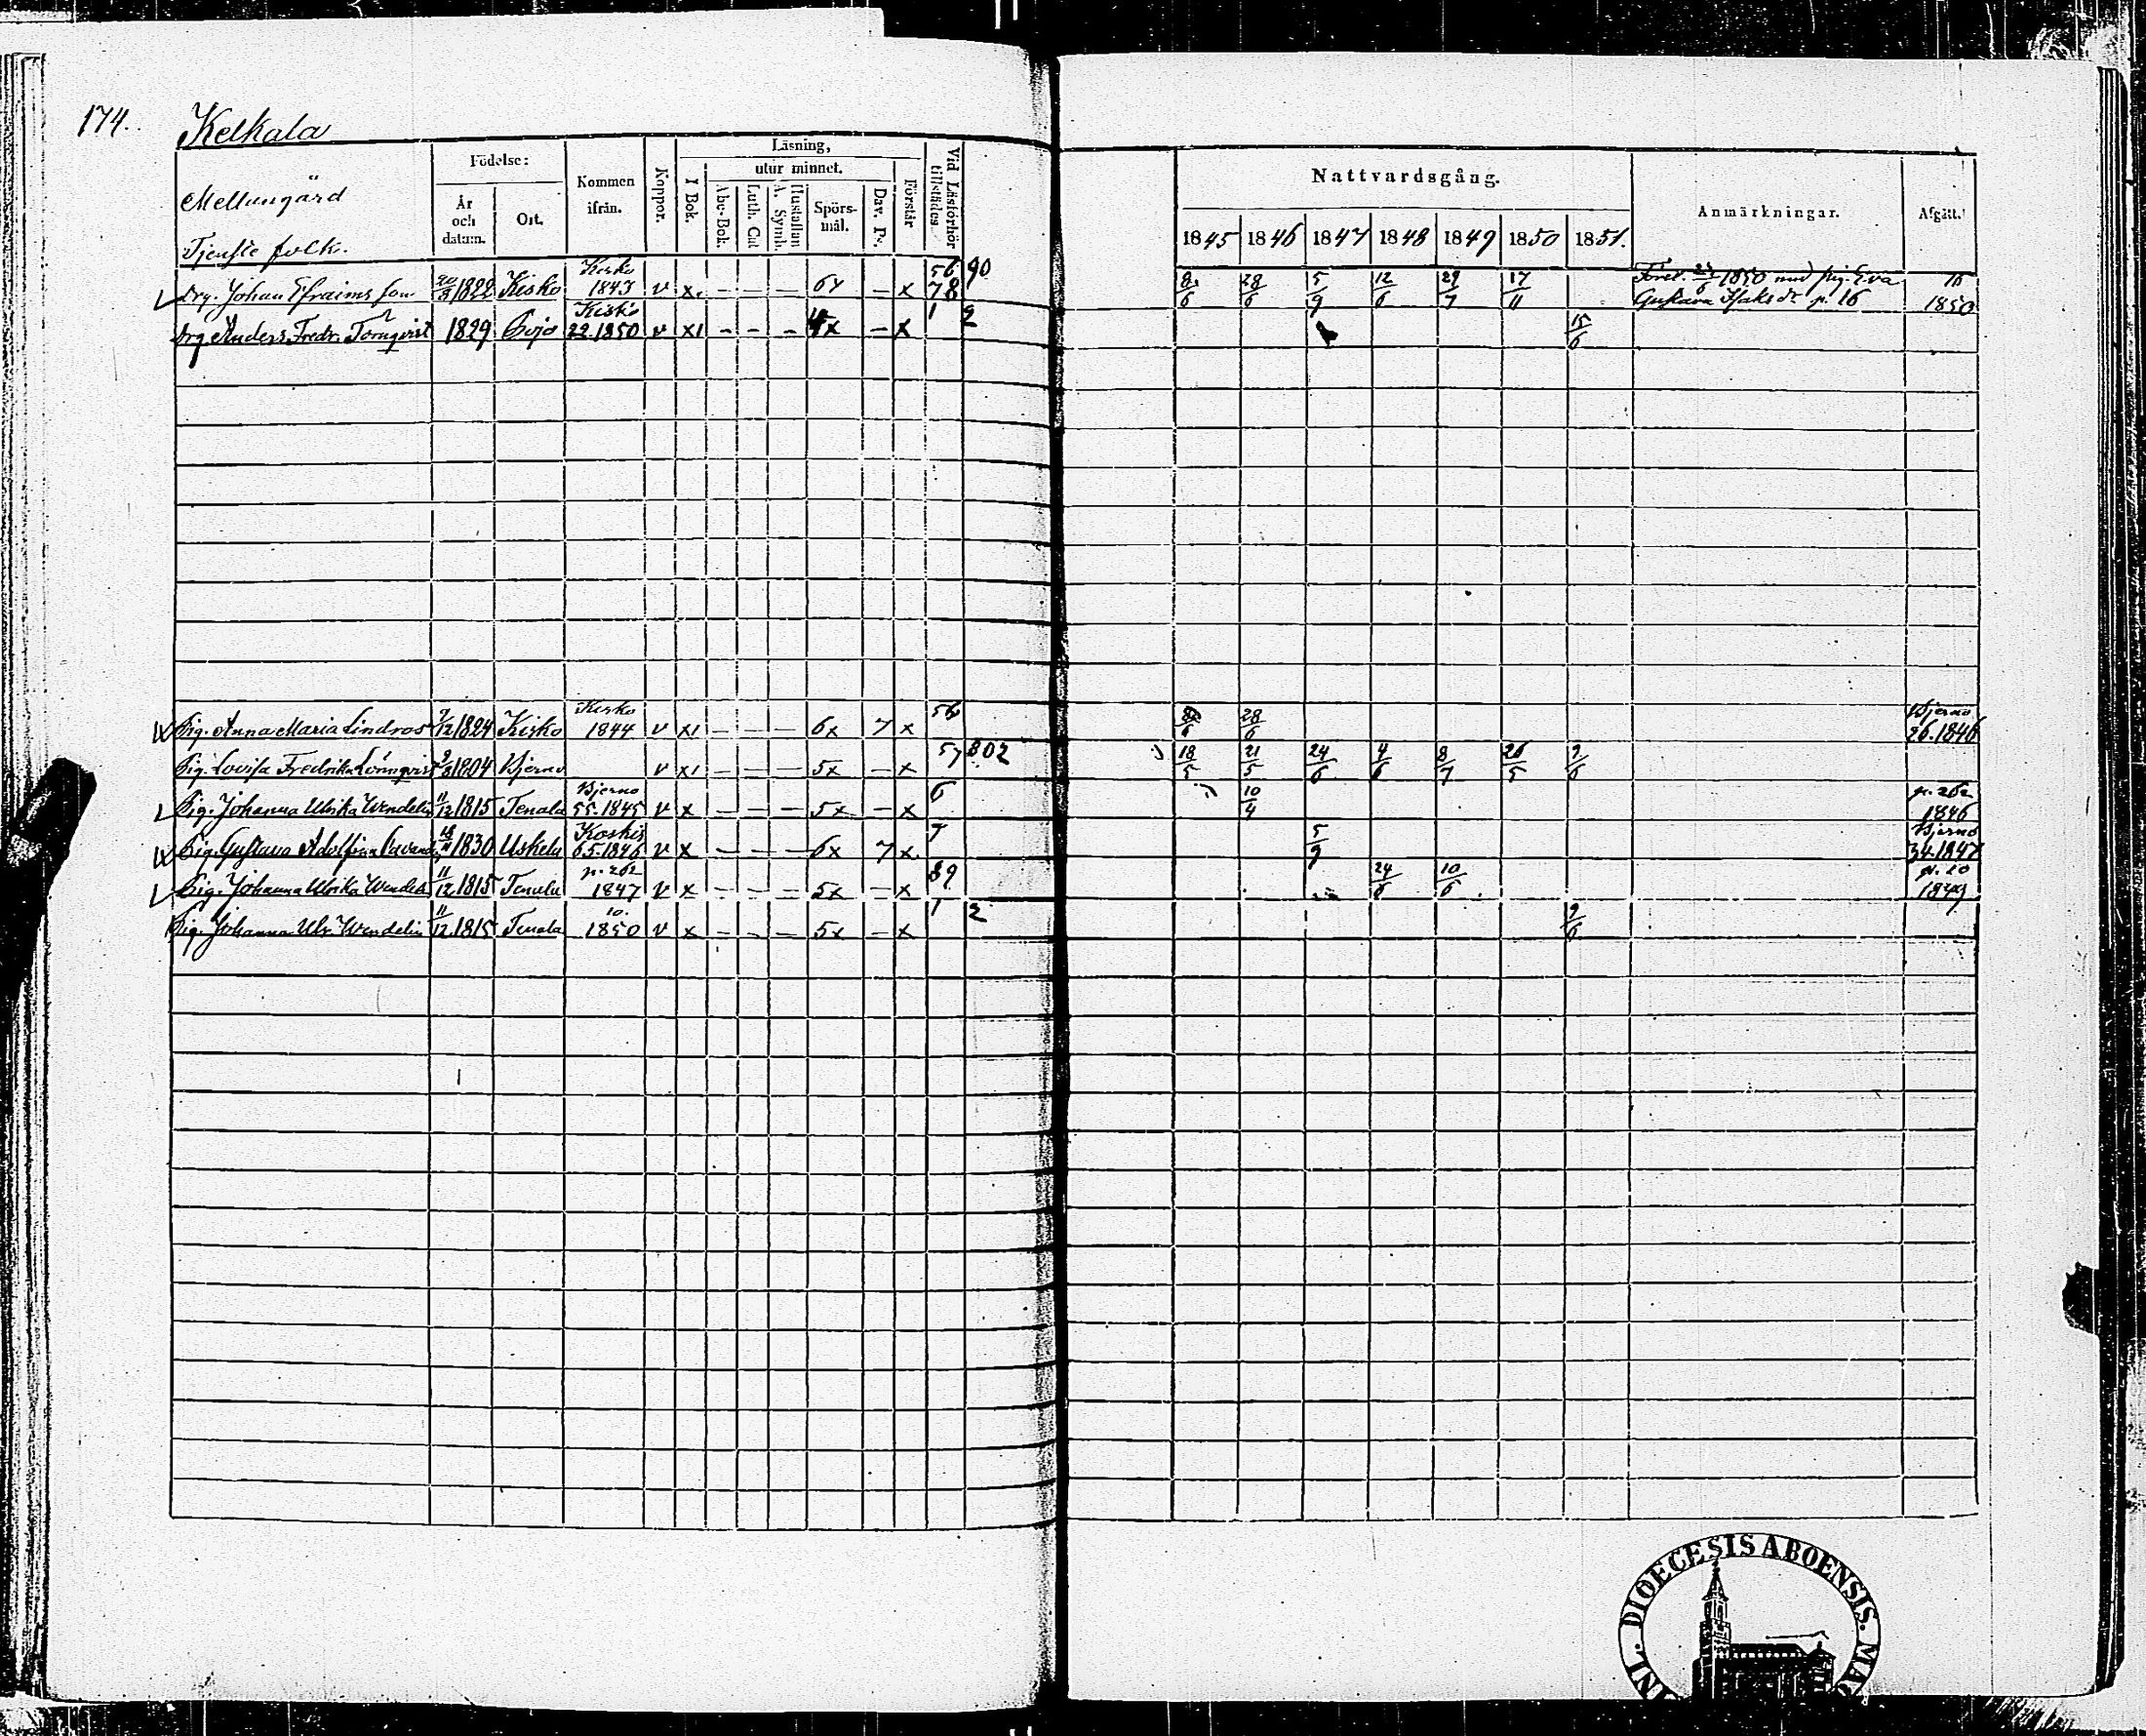 174. Kelkala
Mellangård
Tjenste folk.
Födelse:
År och datum.
Ort.
Kommen ifrån.
Koppor.
Läsning,
I Bok.
utur minnet.
Abc-Bok.
Luth. Cat.
Hustaflan A. Symb.
Spörsmål.
Dav. Ps.
Förstår
Vid Läsförhör tillstädes.
Nattvardsgång.
1845 1846 1847 1848 1849 1850 1851.
Anmärkningar.
Afgått.
Drg. Johan Efraims son 1822 Kisko Kisko 1843 v x 6x – x 56 78 90 8/6 28/6 5/9 12/6 29/7 17/11 1850 med pig. Eva Gustava Isaks dr p. 16 1850
Drg Anders Fredr. Törnqvist 1829 Pojo Kisko 22.1850 v x1 – – – x – x 1 2 15/6
Pig. Anna Maria Lindros 9/12 1824 Kisko Kisko 1844 v x1 – – – 6x 7 x 56 8/6 28/6 Bjerno 26.1846
Pig. Lovisa Fredrika Lönnqvist 1804 Bjerno v x1 – – – 5x – x 57 802 18/5 21/5 24/6 4/6 8/7 26/5 9/6
Pig. Johanna Ulrika Wendelin 11/12 1815 Tenala Bjerno 55.1845 v x – – – 5x – x 6 10/4 p. 262 1846
Pig. Gustava Adolfina 1830 Uskela Koskis 65.1846 v x – – – 6x 7 x 7 5/9 Bjerno 34.1847
Pig. Johanna Ulrika Wendelin 11/12 1815 Tenala p. 262 1847 v x – – – 5x – x 89 24/6 10/6 p. 10 1849
Pig. Johanna Ulr. Wendelin 11/12 1815 Tenala 10. 1850 v x – – – 5x – x 1 2 9/6
DIOECESIS ABOENSIS.